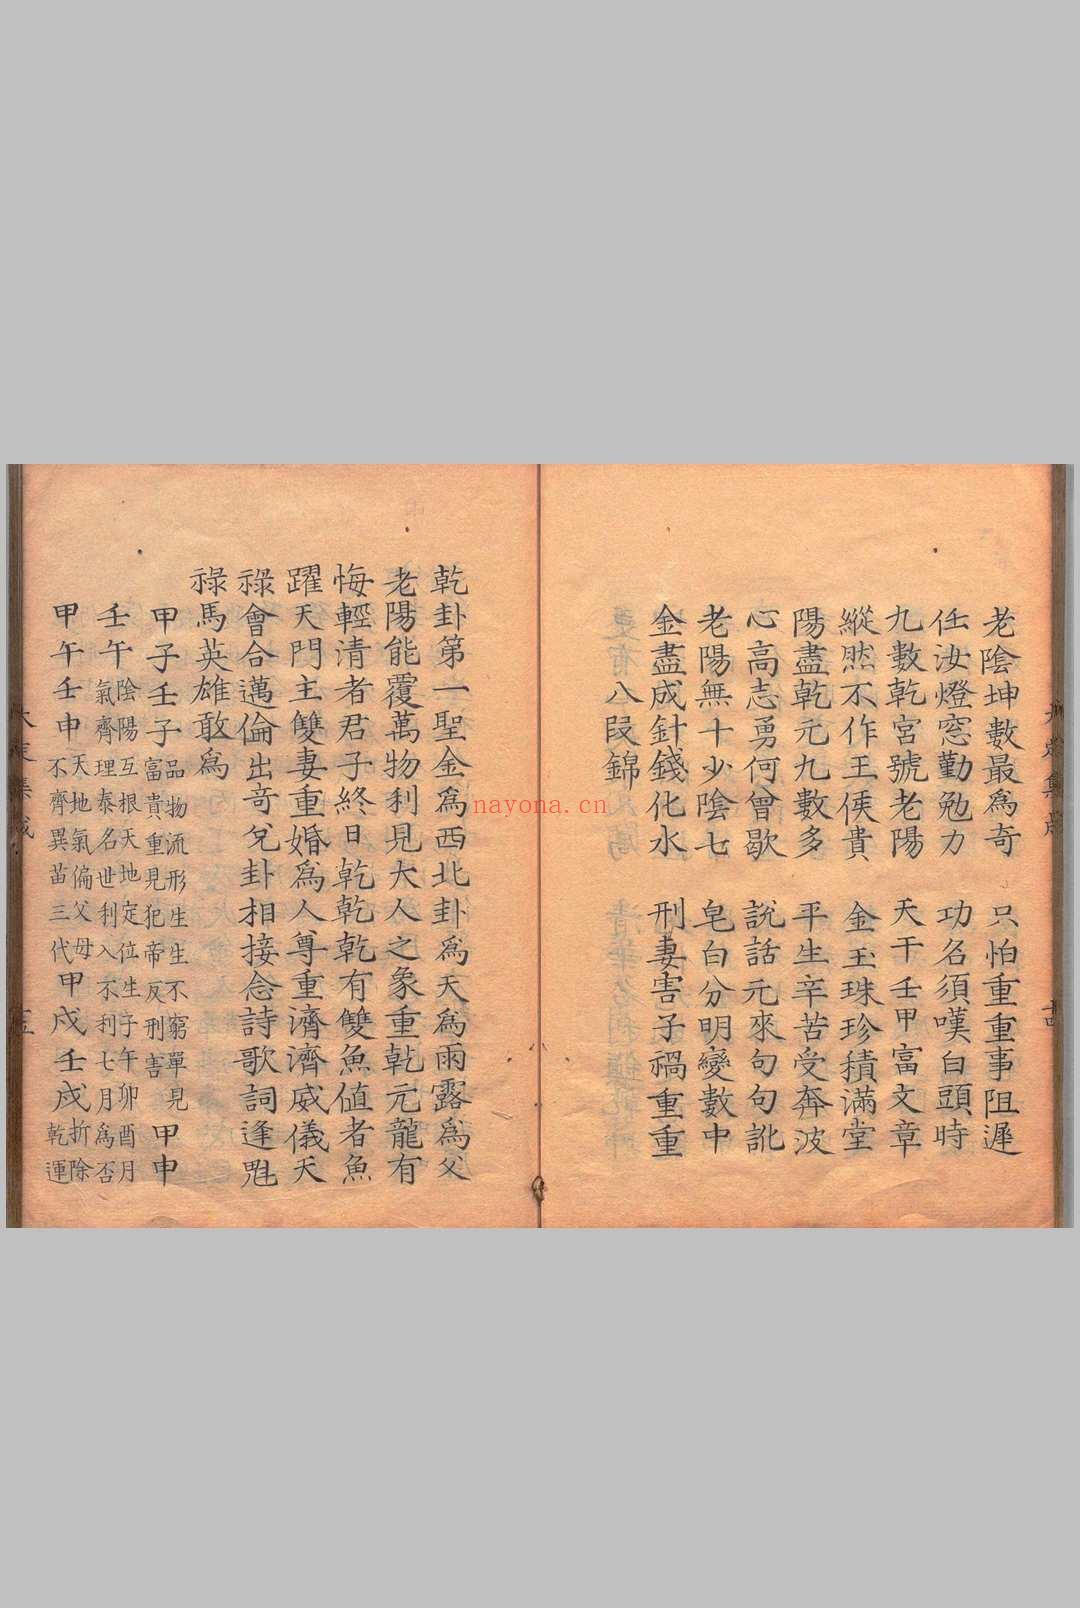 老陰坤數最爲奇　只怕重重事阻遲
任汝燈窓勤勉力　功名須嘆白頭時
九數乾宮號老陽　天干壬甲富文章
縱然不作王侯貴　金玉珠珍積滿堂
陽盡乾元九數多　平生辛苦受奔波
心高志勇何曾歇　說話元來句句訛
老陽無十少陰七　皂白分明變數中
金盡成針錢化水　刑妻害子禍重重
八段錦
乾卦第一聖金爲西北卦爲天爲雨露爲父
老陽能覆萬物利見大人之象重乾元龍有
悔輕清者君子終日乾乾乾有雙魚值者魚
躍天門主雙妻重婚爲人尊重濟濟威儀天
祿會合邁倫出奇兌卦相接念詩歌詞逢魁
祿馬英雄敢爲
甲子壬子品物流形生生不窮單見富貴重見犯帝反刑害甲申
壬午陰陽互根天地定位生子午卯酉月氣齊理泰名世利入不利七月爲否
甲午壬申天地氣偏父母不齊異苗三代甲戌壬戌折除乾運
nayona.cn